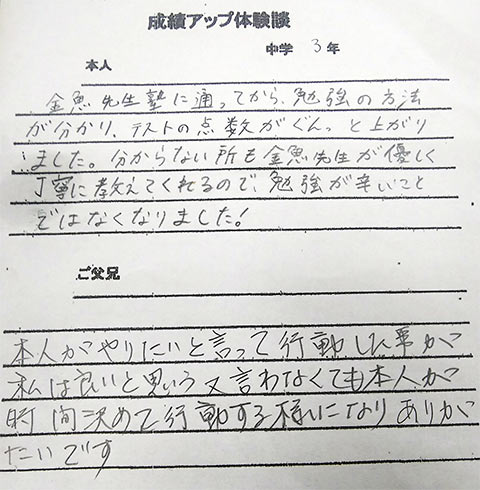 成績アップ体験談
中学 3 年
本人
金魚先生塾に通ってから、勉強の方法
が分かり、テストの点数がぐんっと上がり
ました。分からない所も金魚先生が優しく
丁寧に教えてくれるので、勉強が辛いこと
ではなくなりました!
ご父兄
本人がやりたいと言って行動した事が
私は良いと思いう又言わなくても本人が
時間決めて行動する様になりありがた
たいです